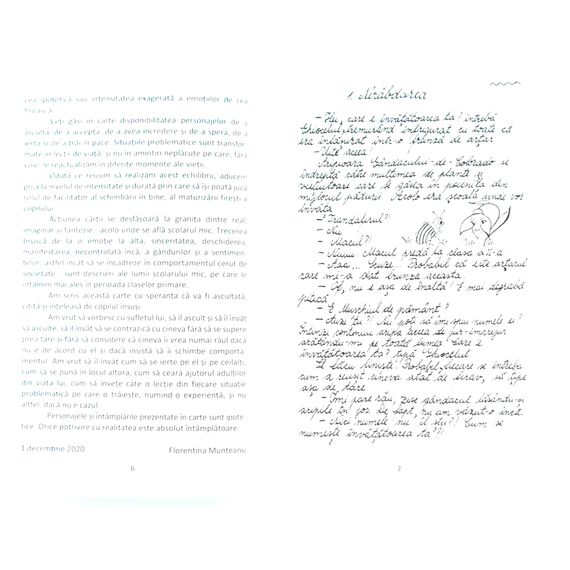 cea ipotetică sau intensitatea exagerată a emoțiilor de cea
firească.
Veți găsi în carte disponibilitatea personajelor de a
asculta, de a accepta, de a avea încredere și de a spera, de a
ierta și de a trăi în pace. Situațiile problematice sunt transfor-
mate în lecții de viață, și nu în amintiri neplăcute pe care, fără
voie, le reactualizăm în diferite momente ale vieții.
Odată ce reușim să realizăm acest echilibru, aducem
greșala la nivelul de intensitate și durată prin care să își poată juca
rolul de facilitator al schimbării în bine, al maturizării firești a
copilului.
Acțiunea cărții se desfășoară la granița dintre real,
imaginar și fantezie - acolo unde se află școlarul mic. Trecerea
bruscă de la o emoție la alta, sinceritatea, deschiderea,
manifestarea necontrolată încă, a gândurilor și a sentimen-
telor, astfel încât să se încadreze în comportamentul cerut de
societate - sunt descrieri ale lumii școlarului mic, pe care le
întâlnim mai ales în perioada claselor primare.
Am scris această carte cu speranța că va fi ascultată,
citită și înțeleasă de copilul însuși.
Am vrut să vorbesc cu sufletul lui, să îl ascult și să îl învăț
să asculte, să îl învăț să se contrazică cu cineva fără să se supere
prea tare și fără să considere că cineva îi vrea numai răul dacă
nu e de acord cu el și dacă insistă să îi schimbe comporta-
mentul. Am vrut să îl învăț cum să simtă și ce este empatia,
cum să se pună în locul altora, cum să ceară ajutorul adulților
din viața lui, cum să învețe câte o lecție din fiecare situație
problematică pe care o trăiește, numind-o experiență, și nu
altfel, dacă nu e cazul.
Personajele și întâmplările prezentate în carte sunt ipote-
tice. Orice potrivire cu realitatea este absolut întâmplătoare.
1 decembrie 2020 Florentina Munteanu
6
1. Nerăbdarea
- Hei, care e învățătoarea ta? întrebă
Ghiocelul, tremurând înfrigurat cu toate că
era înfășurat într-o frunză de arțar.
- Uite, aceea!
Aripioara Gândacului-de-Colorado se
îndreptă către mulțimea de plante și
viețuitoare care se găsea în poienița din
mijlocul pădurii. Acolo era școală unde vor
învăța.
- Trandafirul?!
- Nu.
- Macul?!
- Nuuu. Macul predă la clasa a II-a
- Aaa... Scuze. Probabil că este arțarul
care mi-a dat frunza aceasta.
- Of, nu e așa de înaltă! E mai degrabă
joacă.
- E Mușchiul de pământ?
- Auzi tu?! Nu poți să îmi spui numele ei?
Întinzi continuu aripa aceea de jur-împrejur
arătându-mi pe toată lumea. Care e
învățătoarea ta? țipă Ghiocelul.
Se făcu liniște. Probabil fiecare se întreba
cum a reușit cineva atât de firav, să țipe
așa de tare.
- Îmi pare rău, zise gândacul lăsându-și
aripile în jos. De fapt, nu am văzut-o încă.
- Nici numele nu îl știi?! Cum se
numește învățătoarea ta?!
7